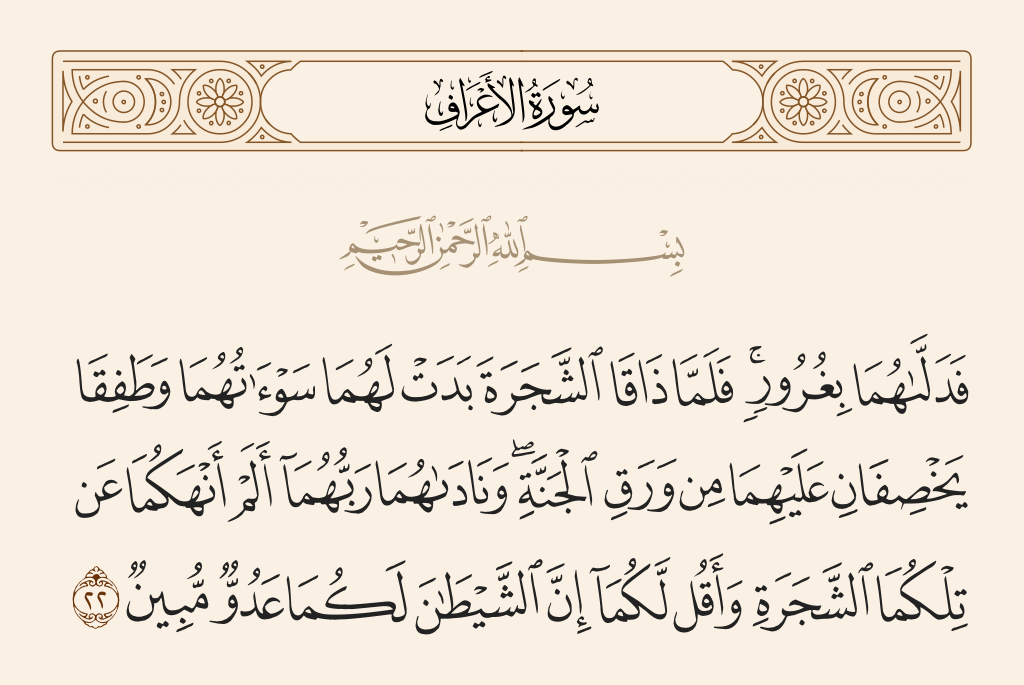 سُورَةُ الأَعْرَافِ
بِسْمِ ٱللَّهِ ٱلرَّحْمَٰنِ ٱلرَّحِيمِ
فَدَلَّىٰهُمَا بِغُرُورٍۚ فَلَمَّا ذَاقَا ٱلشَّجَرَةَ بَدَتْ لَهُمَا سَوْءَٰتُهُمَا وَطَفِقَا
يَخْصِفَانِ عَلَيْهِمَا مِن وَرَقِ ٱلْجَنَّةِۖ وَنَادَىٰهُمَا رَبُّهُمَآ أَلَمْ أَنْهَكُمَا عَن
تِلْكُمَا ٱلشَّجَرَةِ وَأَقُل لَّكُمَآ إِنَّ ٱلشَّيْطَٰنَ لَكُمَا عَدُوٌّ مُّبِينٌ ٢٢